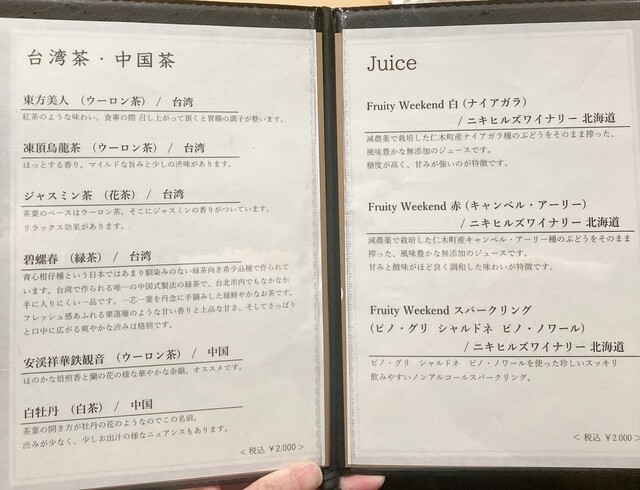 台湾茶・中国茶
東方美人 (ウーロン茶) / 台湾
紅茶のような味わい。食事の際 召し上がって頂くと胃腸の調子が整います。
凍頂烏龍茶 (ウーロン茶) / 台湾
ほっとする香り。マイルドな旨みと少しの渋味があります。
ジャスミン茶 (花茶) / 台湾
茶葉のベースはウーロン茶。そこにジャスミンの香りがついています。
リラックス効果があります。
碧螺春 (緑茶) / 台湾
青心柑仔種という日本ではあまり馴染みのない緑茶向き希少品種で作られて
います。台湾で作られる唯一の中国式製法の緑茶で、台北市内でもなかなか
手に入りにくい一品です。一芯一葉を丹念に手摘みした緑鮮やかなお茶です。
フレッシュ感あふれる栗落雁のような甘い香りと上品な甘さ、そしてさっぱり
と口中に広がる爽やかな渋みは格別です。
安渓祥華鉄観音 (ウーロン茶) / 中国
ほのかな焙煎香と蘭の花の様な華やかな余韻。オススメです。
白牡丹 (白茶) / 中国
茶葉の開き方が牡丹の花のようなのでこの名前。
渋みが少なく、少しお出汁の様なニュアンスもあります。
< 税込 ¥2,000 >
Juice
Fruity Weekend 白 (ナイアガラ)
/ ニキヒルズワイナリー 北海道
減農薬で栽培した仁木町産ナイアガラ種のぶどうをそのまま搾った、
風味豊かな無添加のジュースです。
糖度が高く、甘みが強いのが特徴です。
Fruity Weekend 赤 (キャンベル・アーリー)
/ ニキヒルズワイナリー 北海道
減農薬で栽培した仁木町産キャンベル・アーリー種のぶどうをそのまま
搾った、風味豊かな無添加のジュースです。
甘みと酸味がほど良く調和した味わいが特徴です。
Fruity Weekend スパークリング
(ピノ・グリ シャルドネ ピノ・ノワール)
/ ニキヒルズワイナリー 北海道
ピノ・グリ シャルドネ ピノ・ノワールを使った珍しいスッキリ
飲みやすいノンアルコールスパークリング。
< 税込 ¥2,000 >